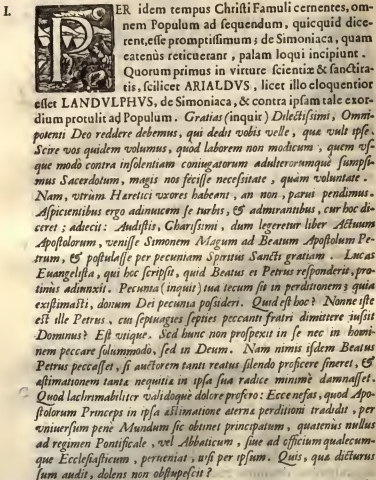 I. PER idem tempus Christi Famuli cernentes, om-
nem Populum ad sequendum, quicquid dice-
rent, esse promptissimum; de Simoniaca, quam
eatenùs reticuerant, palam loqui incipiunt.
Quorum primus in virtute scientiæ & sanctita-
tis, scilicet ARIALDVS, licet illo eloquentior
esset LANDVLPHVS, de Simoniaca, & contra ipsam tale exor-
dium protulit ad Populum. Gratias (inquit) Dilectissimi, Omni-
potenti Deo reddere debemus, qui dedit vobis velle, quæ vult ipse.
Scire vos quidem volumus, quod laborem non modicum, quem vs-
que modò contra insolentiam coniugatorum adulterorumque sumpsi-
mus Sacerdotum, magis nos fecisse necessitate, quàm voluntate.
Nam, vtrùm Hæretici vxores habeant, an non, parui pendimus.
Aspicientibus ergo adinuicem se turbis, & admirantibus, cur hoc di-
ceret; adiecit: Audistis, Charissimi, dum legeretur liber Actuum
Apostolorum, venisse Simonem Magum ad Beatum Apostolum Pe-
trum, & postulasse per pecuniam Spiritus Sancti gratiam. Lucas
Euangelista, qui hoc scripsit, quid Beatus ei Petrus responderit, pro-
tinùs adiunxit. Pecunia (inquit) tua tecum sit in perditionem; quia
existimasti, donum Dei pecunia possideri. Quid est hoc? Nonne iste
est ille Petrus, cui septuagies septies peccanti fratri dimittere iussit
Dominus? Est vtique. Sed hunc non prospexit in se nec in homi-
nem peccare solummodo, sed in Deum. Nam nimis isdem Beatus
Petrus peccasset, si auctorem tanti reatus silendo proficere sineret, &
æstimationem tanta nequitia in ipsa sua radice minimè damnasset.
Quod lachrimabiliter validoque dolore profero: Ecce nefas, quod Apo-
stolorum Princeps in ipsa æstimatione æternæ perditioni tradidit, per
vniuersum penè Mundum sic obtinet principatum, quatenus nullus
ad regimen Pontificale, vel Abbaticum, siue ad officium qualecum-
que Ecclesiasticum, perueniat, nisi per ipsum. Quis, quæ dicturus
sum audit, dolens non obstupescit?